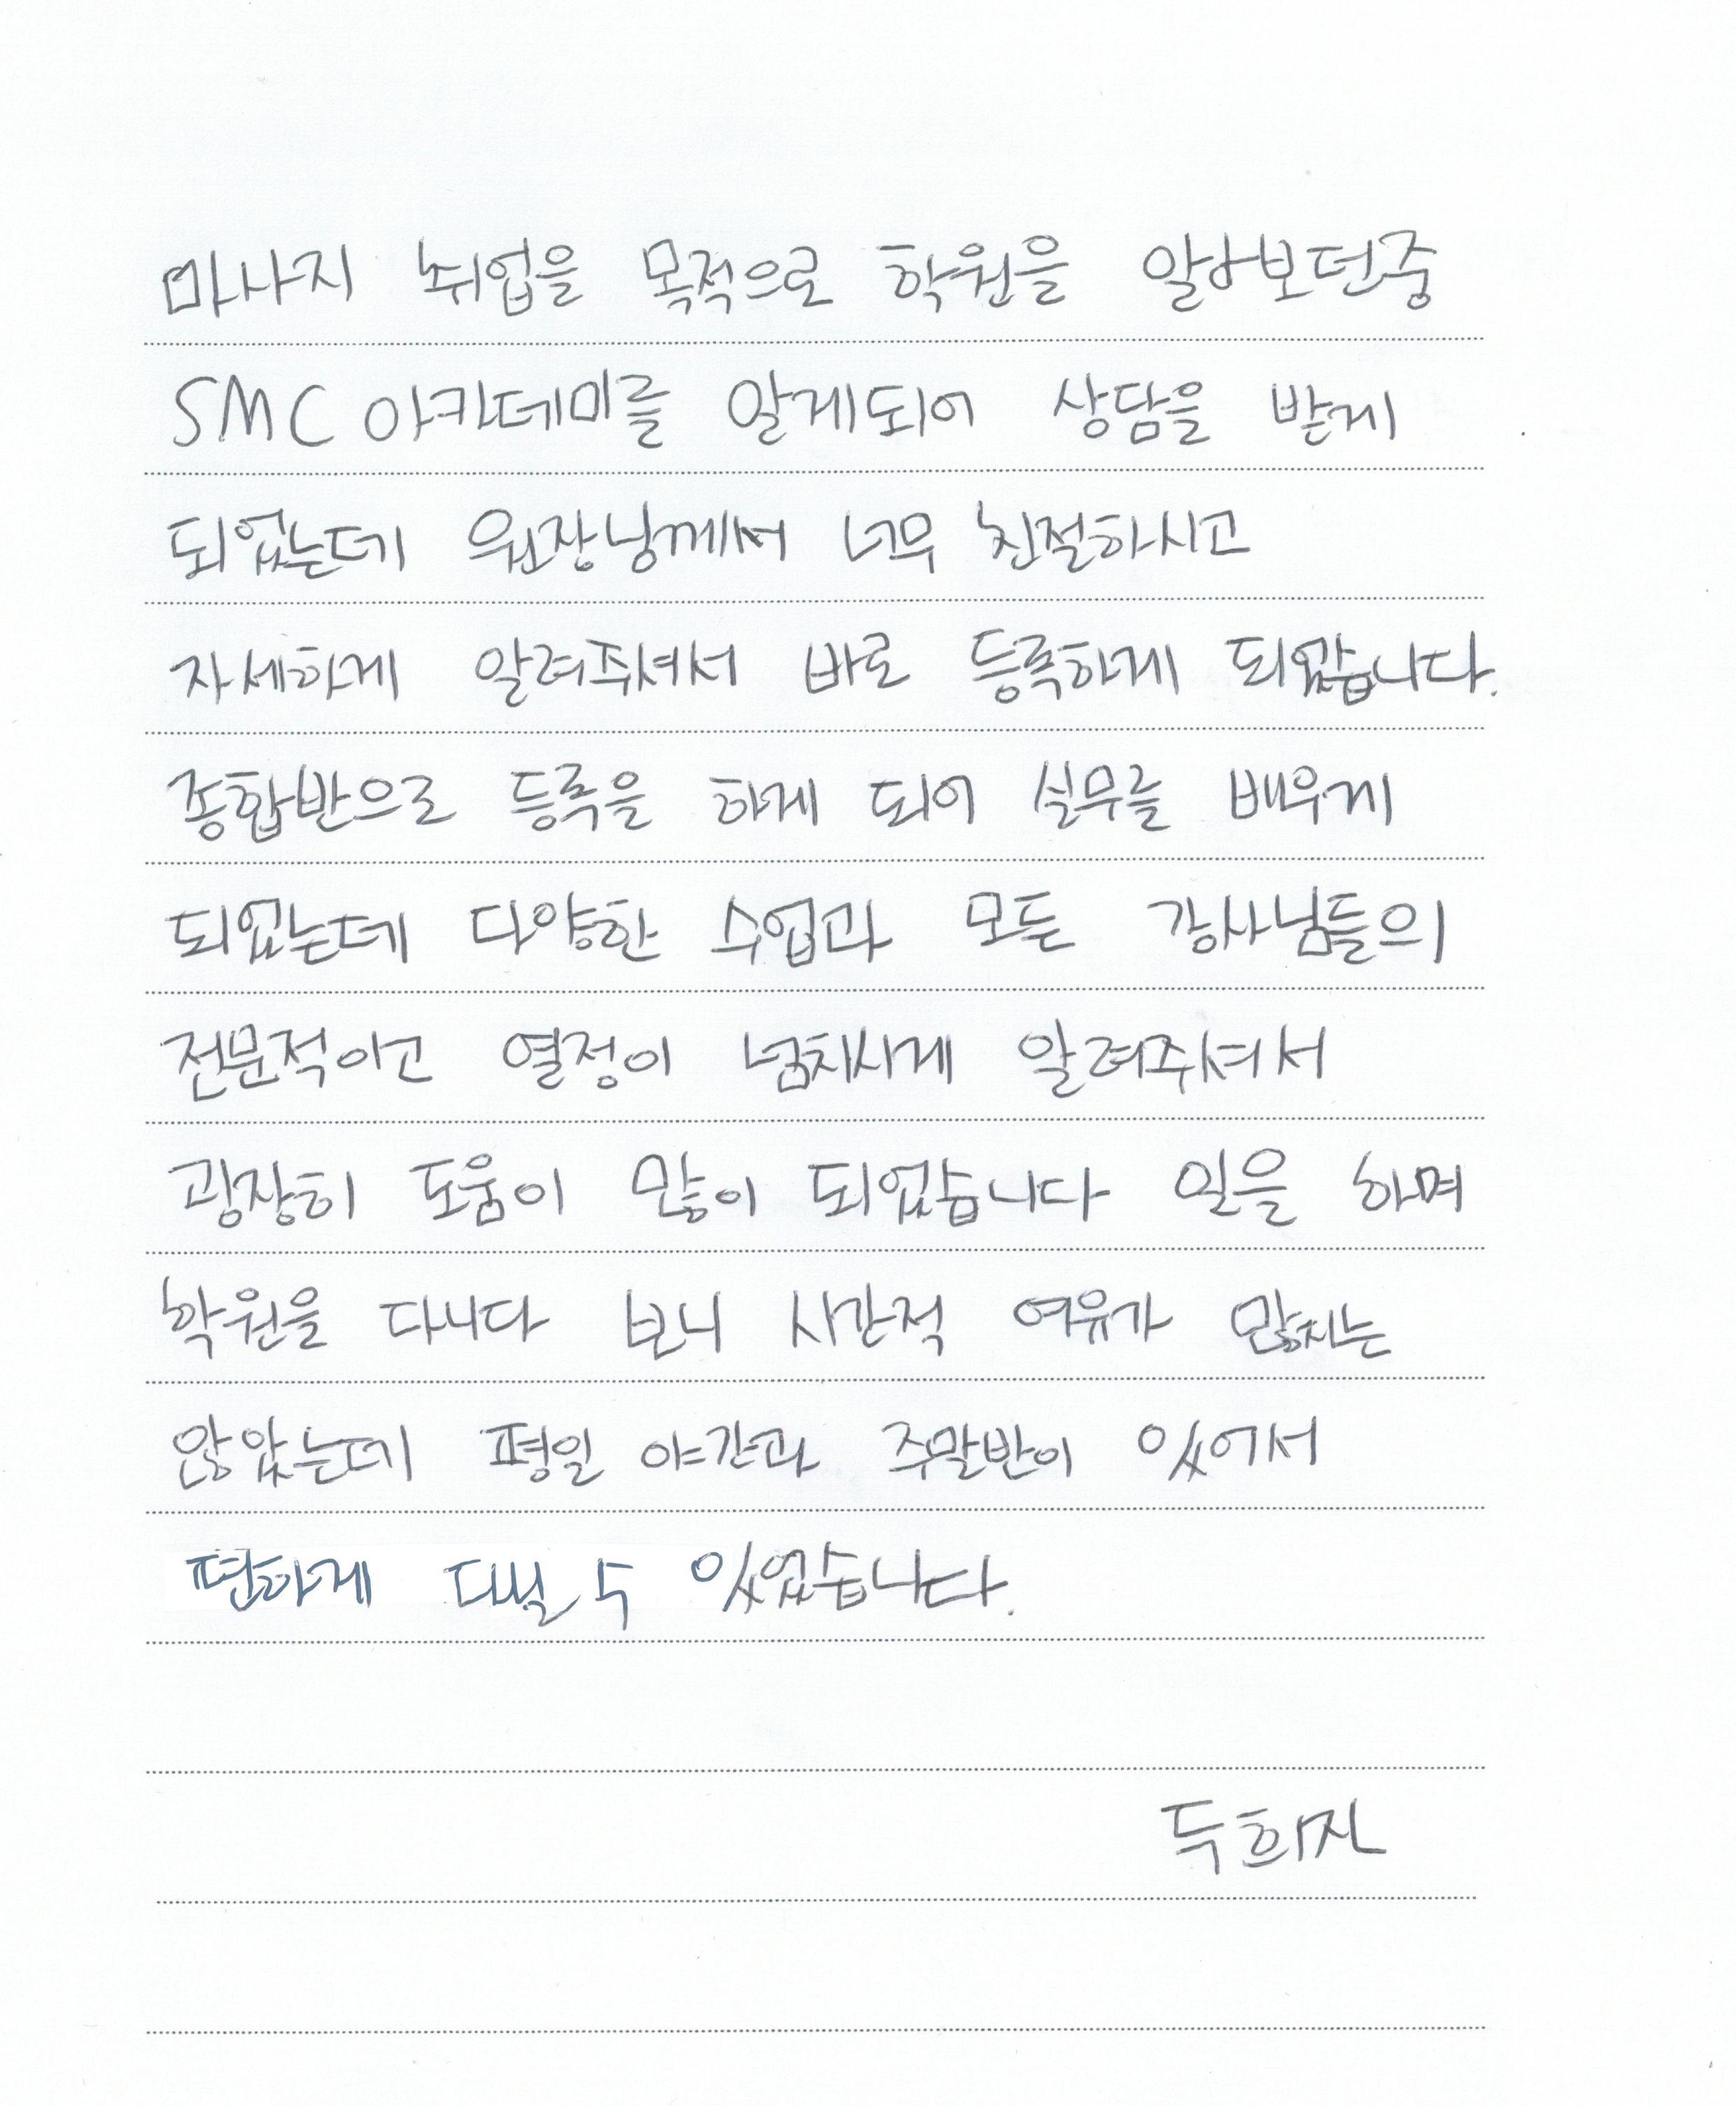 마사지 취업을 목적으로 학원을 알아보던중
SMC 아카데미를 알게되어 상담을 받게
되었는데 원장님께서 너무 친절하시고
자세하게 알려주셔서 바로 등록하게 되었습니다.
종합반으로 등록을 하게 되어 실무를 배우게
되었는데 다양한 수업과 모든 강사님들의
전문적이고 열정이 넘치시게 알려주셔서
굉장히 도움이 많이 되었습니다 일을 하며
학원을 다니다 보니 시간적 여유가 많지는
않았는데 평일 야간과 주말반이 있어서
편하게 다닐 수 있었습니다.
두희진